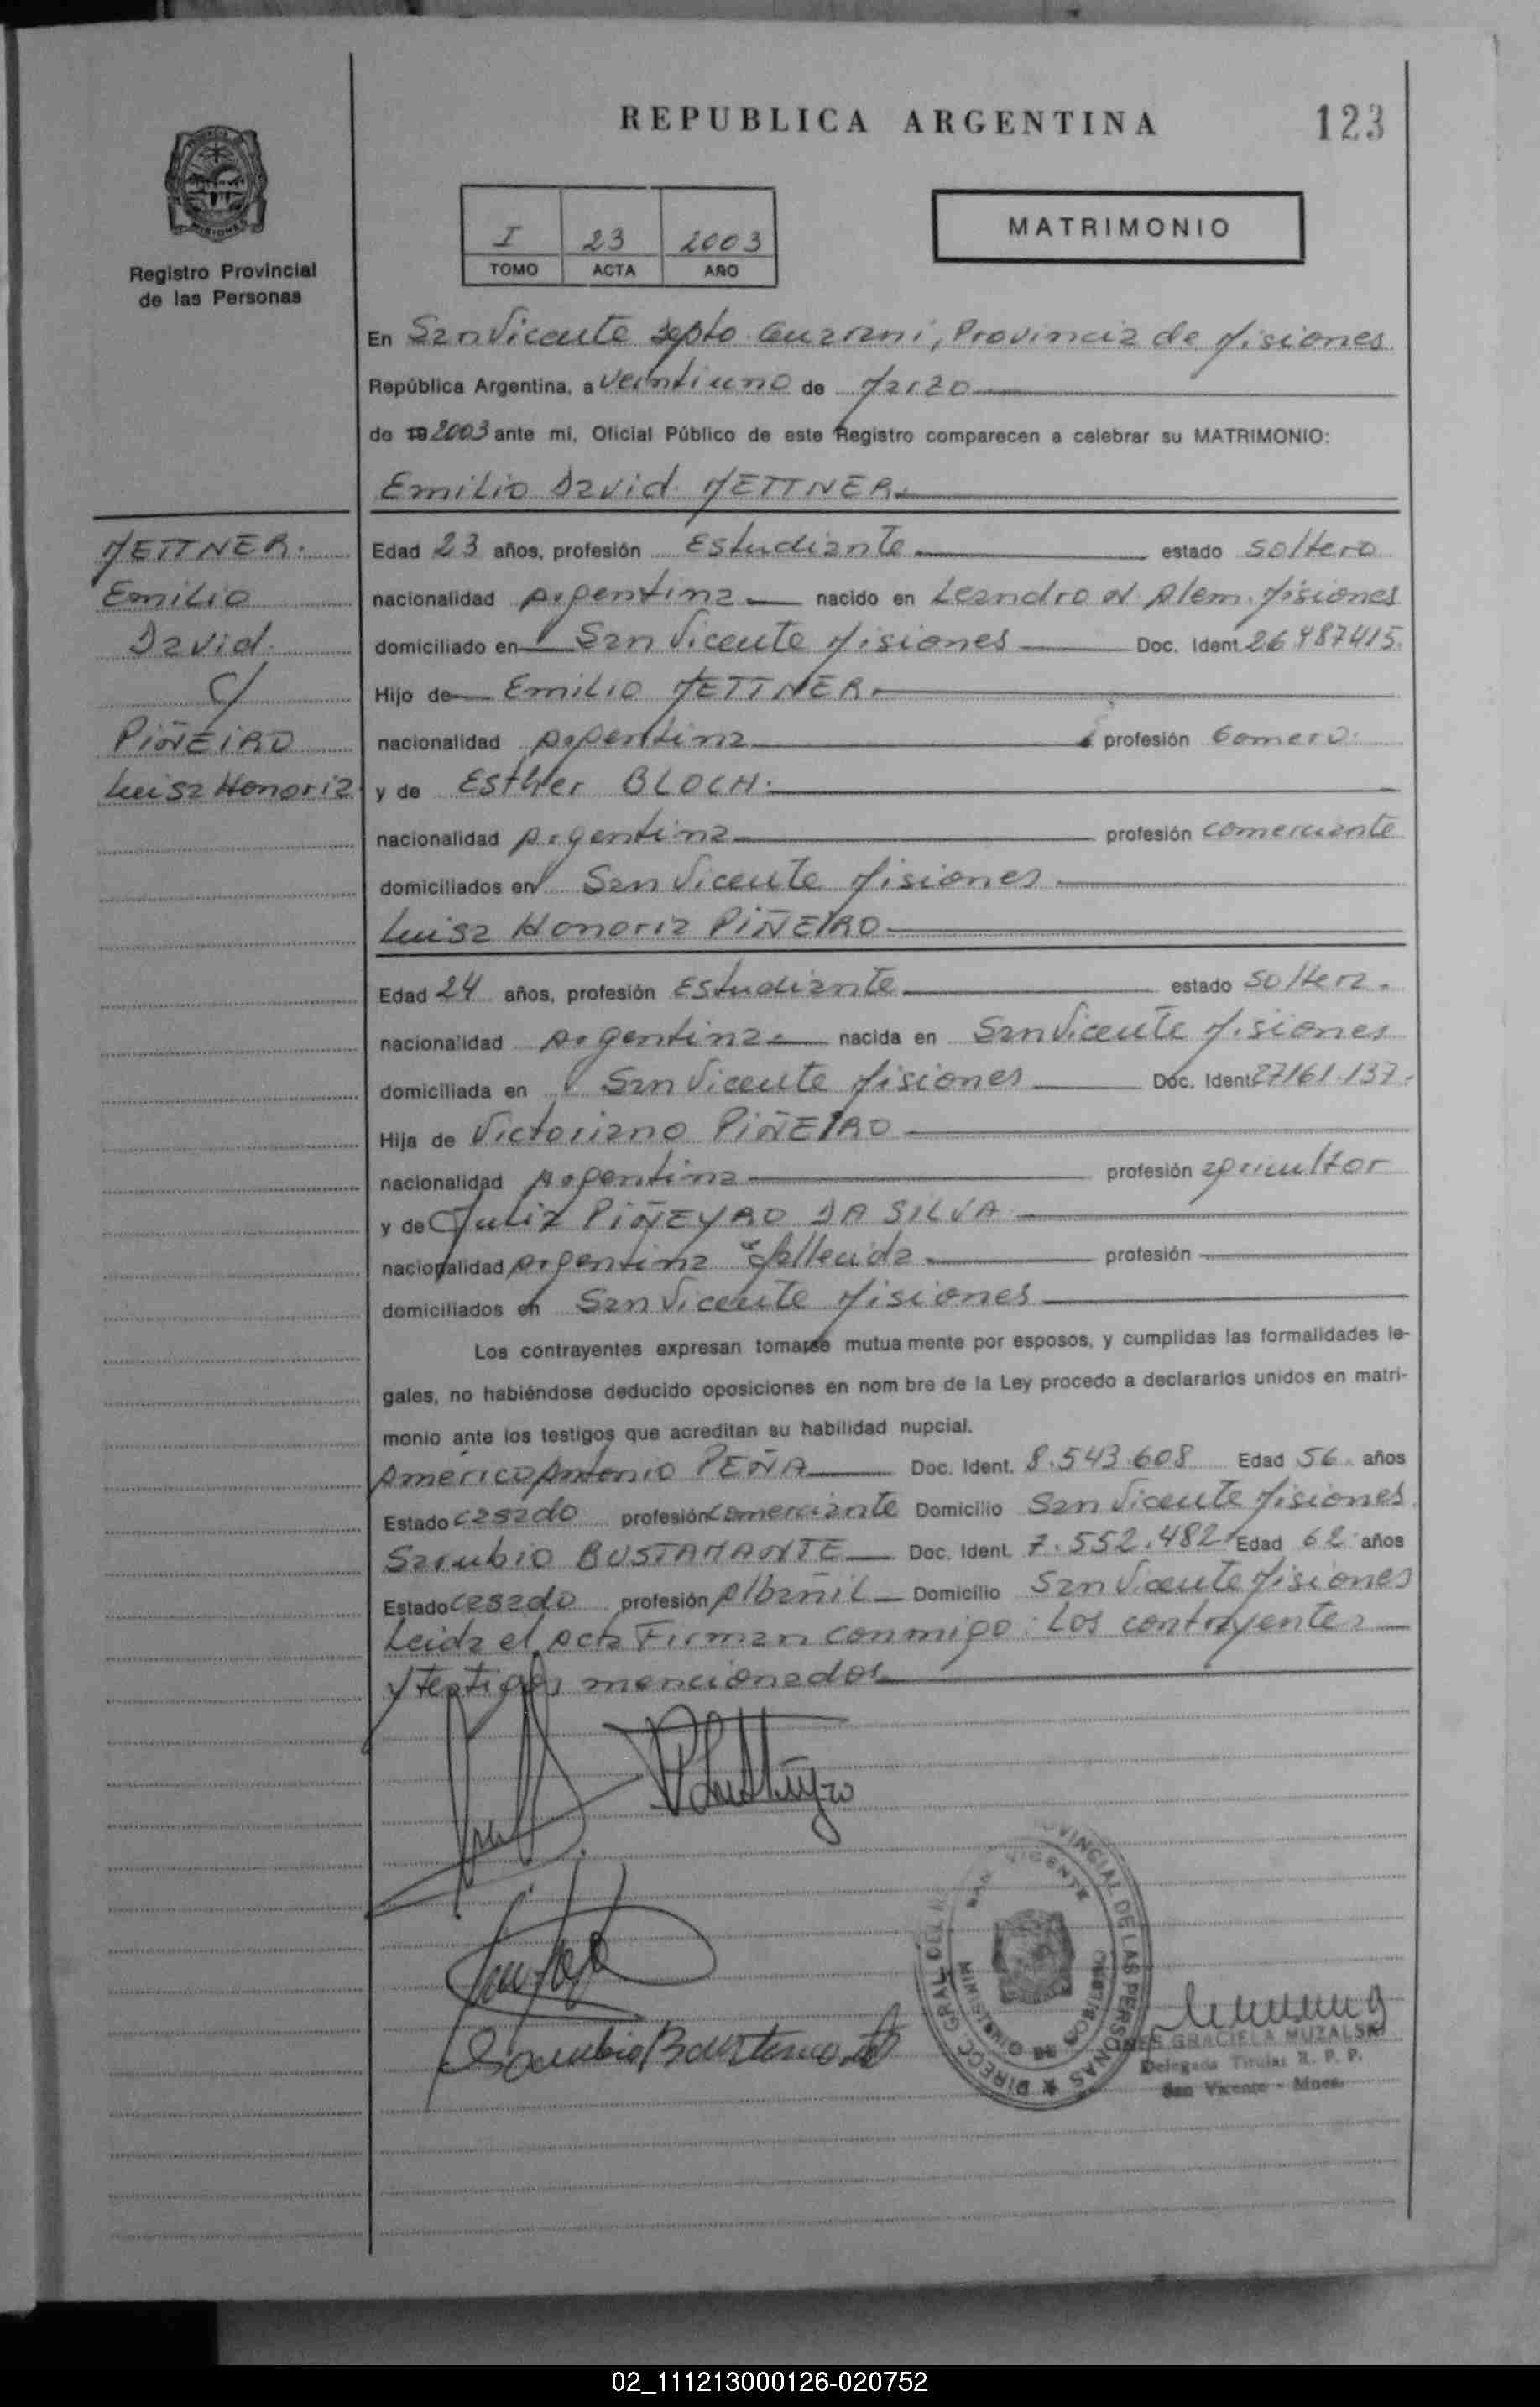 REPUBLICA ARGENTINA
123
I 23 2003
TOMO ACTA AÑO
MATRIMONIO
Registro Provincial
de las Personas
En San Vicente Depto Guarani, Provincia de Misiones
República Argentina, a veintiuno de Marzo
de 19 2003 ante mi, Oficial Público de este Registro comparecen a celebrar su MATRIMONIO:
Emilio David METTNER
METTNER.
Emilio
David.
c/
PIÑEIRO
Luisa Honoria
Edad 23 años, profesión Estudiante estado soltero
nacionalidad Argentina nacido en Leandro N Alem. Misiones
domiciliado en San Vicente Misiones Doc. Ident. 26.487415.
Hijo de Emilio METTNER
nacionalidad Argentina profesión Gomero.
y de Esther BLOCH.
nacionalidad Argentina profesión comerciante
domiciliados en San Vicente Misiones
Luisa Honoria PIÑEIRO
Edad 24 años, profesión Estudiante estado soltera.
nacionalidad Argentina nacida en San Vicente Misiones
domiciliada en San Vicente Misiones Doc. Ident. 27161.137.
Hija de Victoriano PIÑEIRO
nacionalidad Argentina profesión agricultor
y de Julia PIÑEYRO DA SILVA
nacionalidad Argentina fallecida profesión
domiciliados en San Vicente Misiones
Los contrayentes expresan tomarse mutua mente por esposos, y cumplidas las formalidades le-
gales, no habiéndose deducido oposiciones en nom bre de la Ley procedo a declararlos unidos en matri-
monio ante los testigos que acreditan su habilidad nupcial.
Américo Antonio PEÑA Doc. Ident. 8.543.608 Edad 56 años
Estado casado profesión comerciante Domicilio San Vicente Misiones
Sarubio BUSTAMANTE Doc. Ident. 7.552.482 Edad 62 años
Estado casado profesión Albañil Domicilio San Vicente Misiones
Leida el Acta Firman conmigo: Los contrayentes
y testigos mencionados
Sarubio Bustamante
DIRECC GRAL DEL PROVINCIAL DE LAS PERSONAS
SAN VICENTE
MINISTERIO DE GOBIERNO
INES GRACIELA MUZALSKI
Delegada Titular R. P. P.
San Vicente - Mnes.
02_111213000126-020752